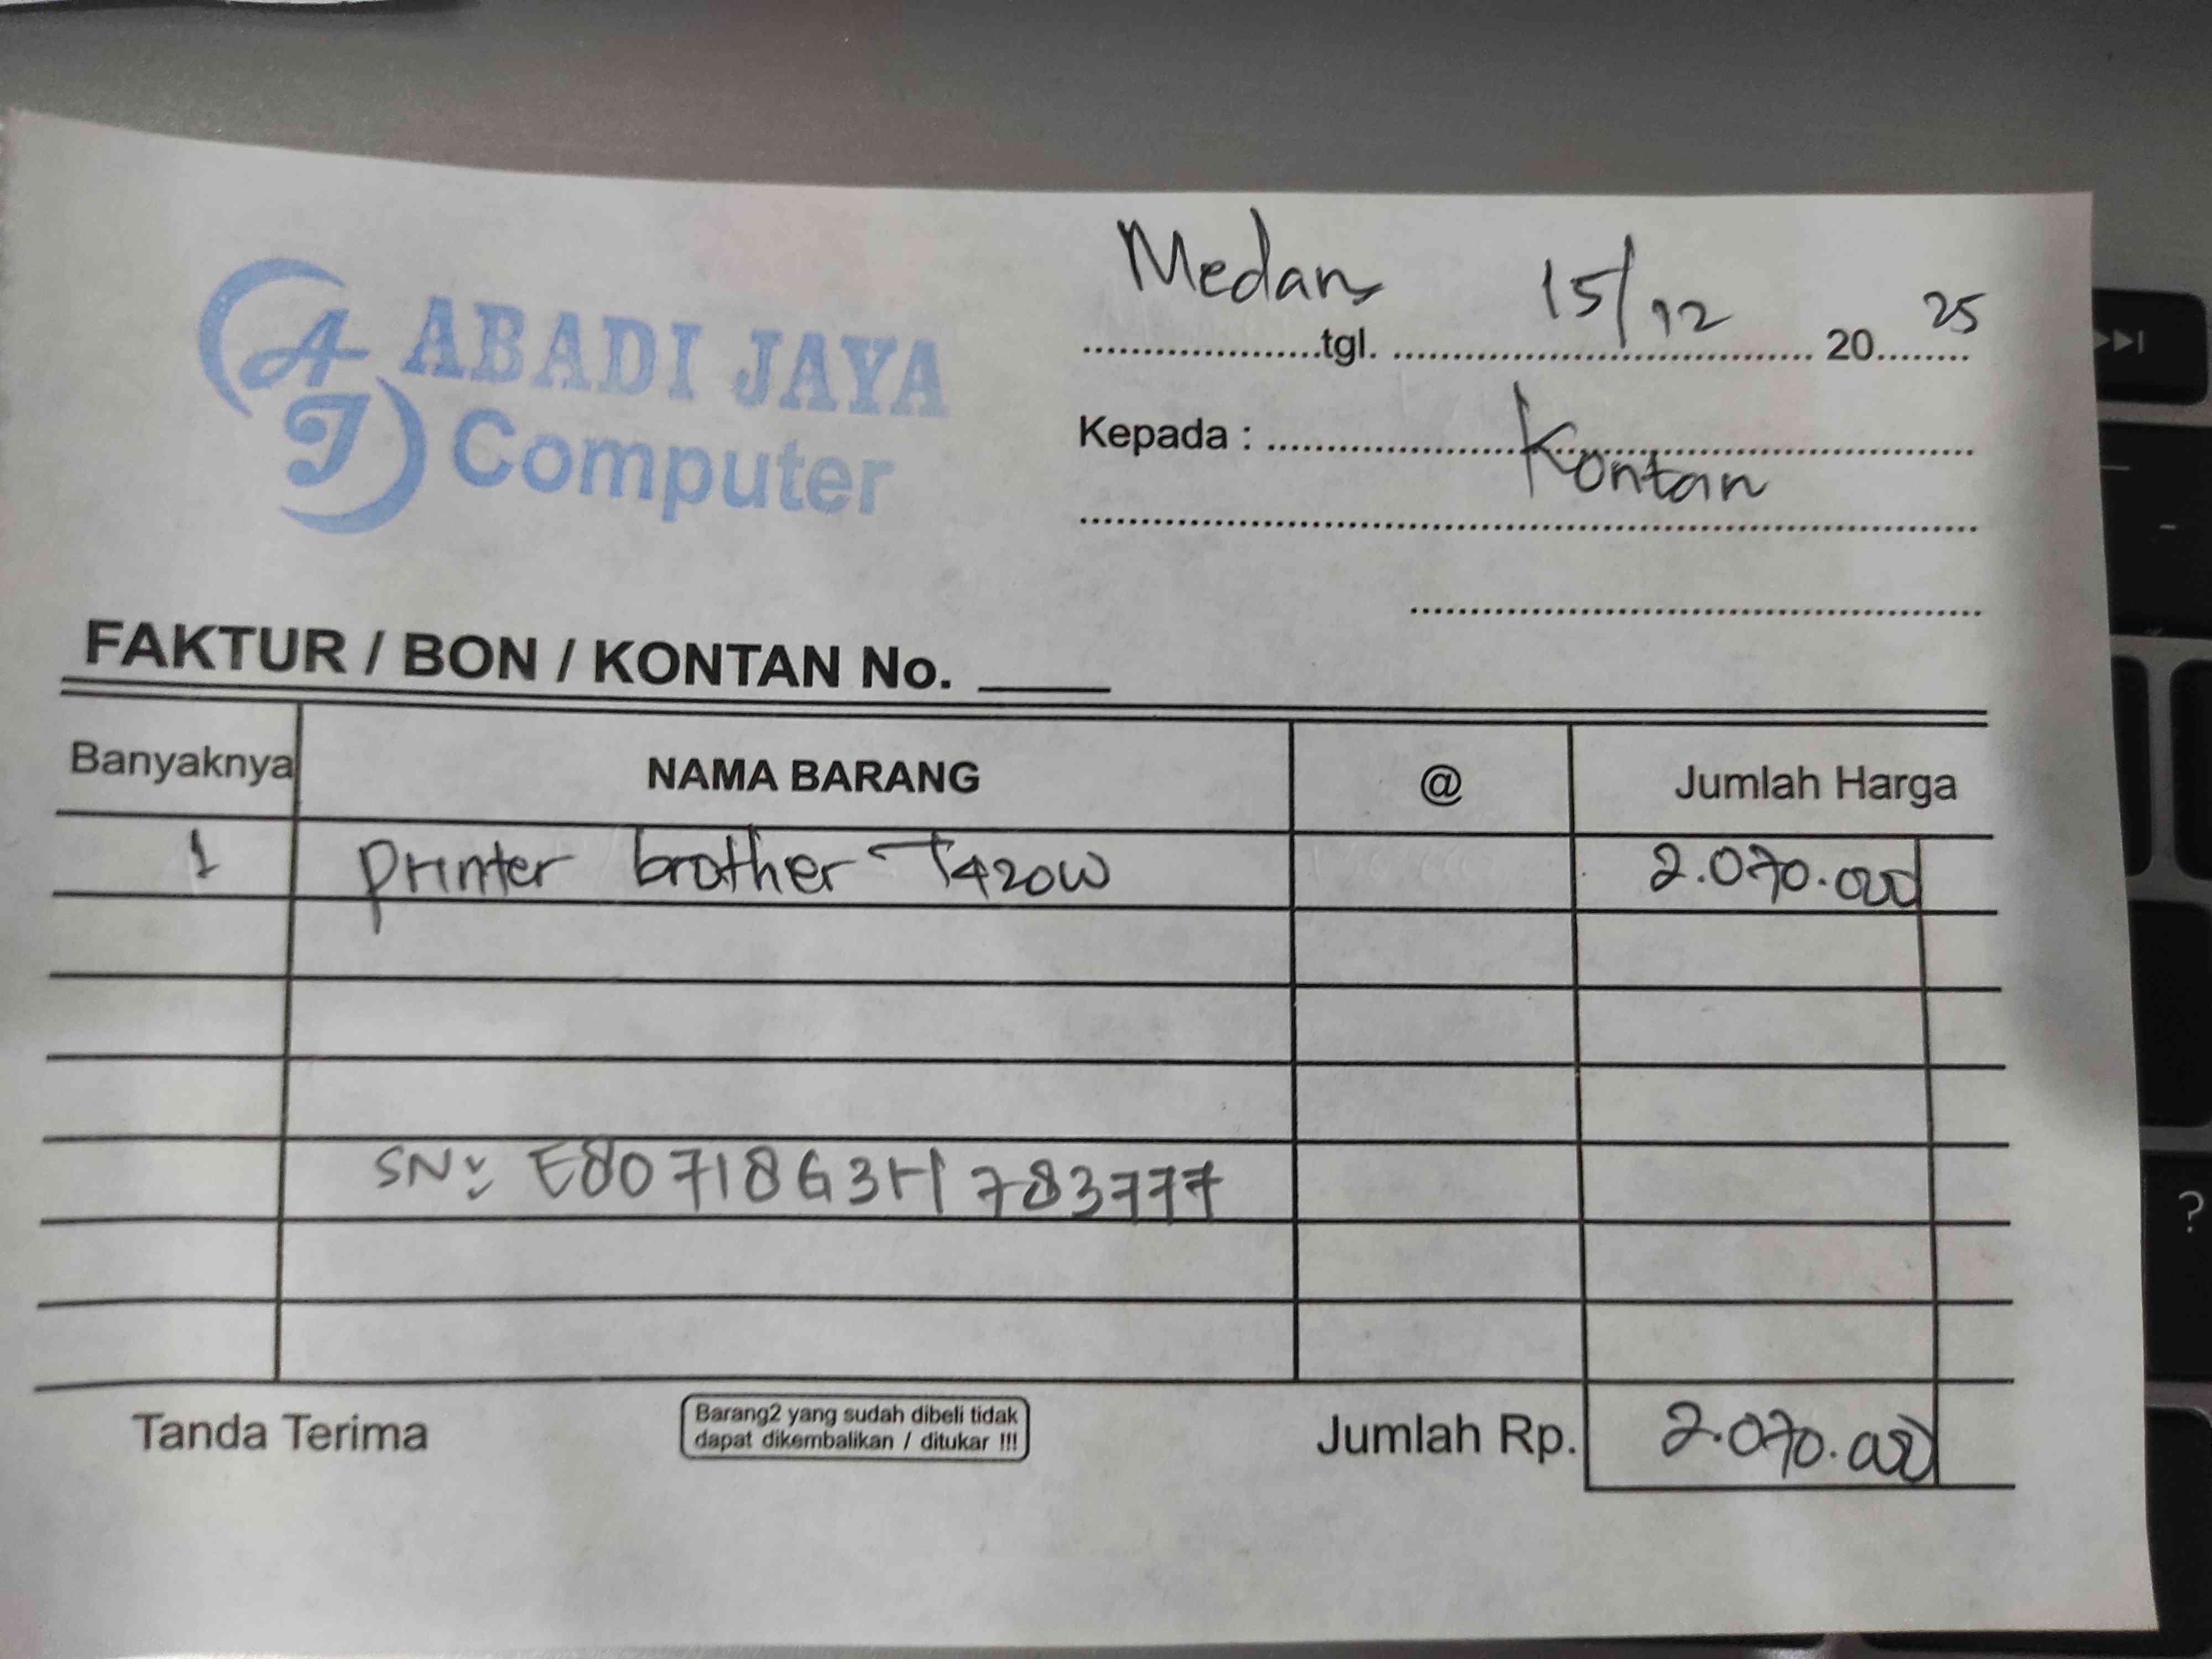 Medan 15/12 25
....................tgl. ................................... 20........
ABADI JAYA
Computer
AJ
Kepada : Kontan
FAKTUR / BON / KONTAN No. _____
Banyaknya NAMA BARANG @ Jumlah Harga
1 printer brother T420W 2.070.000
SN: E80718G3H783777
Tanda Terima
Barang2 yang sudah dibeli tidak
dapat dikembalikan / ditukar !!!
Jumlah Rp. 2.070.000
?